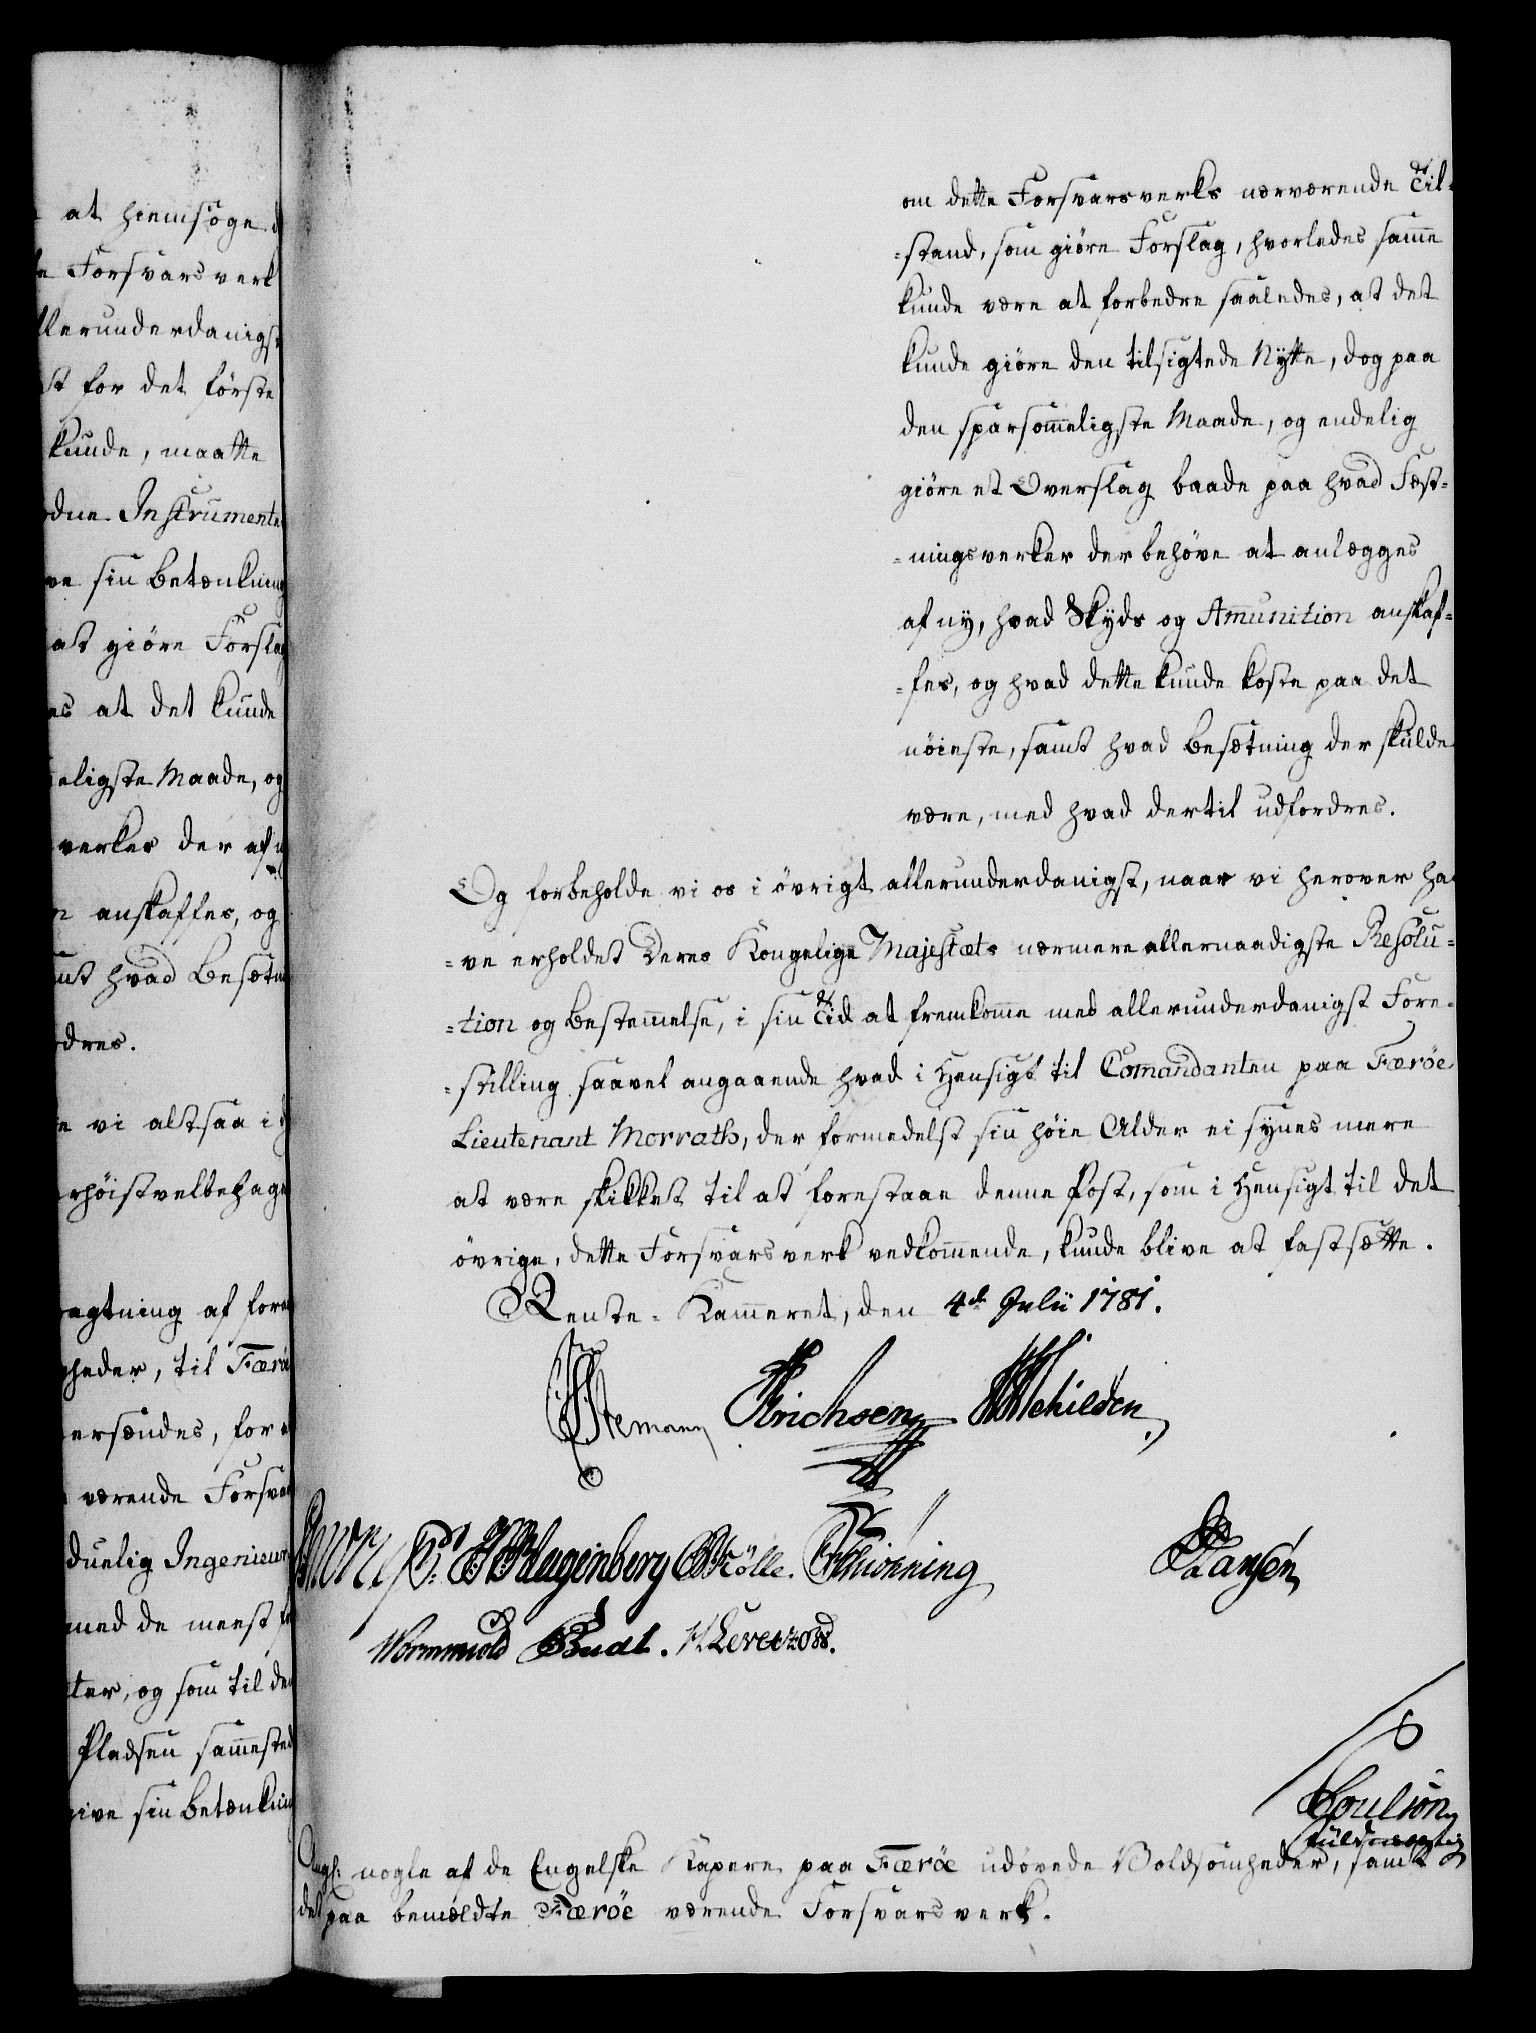 at hiemsøge d
e Forsvars verk
llerunderdanigst
st for det förste
kunde, maatte
dne Instrumente
ve sin Betænkning
at giöre Forslag
es at det kunde
eligste Maade, og
verker der af n
n anskaffes, og
mt hvad Besætn
dres.
e vi altsaa i
rhöistvelbehage
agtning af for
heder, til Færö
ersendes, for
værende Forsva
duelig Ingenieur
med de meest
ter, og som til den
Pladsen sammested
give sin Betænkning
om dette Forsvarsverks nærværende Til-
-stand, som giöre Forslag, hvorledes samme
kunde være at forbedre saaledes, at det
kunde giöre den tilsigtede Nÿtte, dog paa
den sparsom̅eligste Maade, og endelig
giöre et Overslag baade paa hvad Fæst-
-ningsverker der behöve at anlægges
af nÿ, hvad Skÿds og Am̅unition anskaf-
-fes, og hvad dette kunde koste paa det
nöieste, samt hvad Besætning der skulde
være, med hvad dertil udfordres.
Og forbeholde vi os i övrigt allerunderdanigst, naar vi herover ha
-ve erholdet Deres Kongelige Majestæts nærmere allernaadigste Resolu-
-tion og Bestem̅else, i sin Tid at fremkom̅e med allerunderdanigst Fore-
-stilling saavel angaaende hvad i Hensigt til Com̅andanten paa Færöe
Lieutenant Morrath, der formedelst sin höie Alder ei sÿnes mere
at være skikket til at forestaae denne Post, som i Hensigt til det
övrige, dette Forsvarsverk vedkom̅ende, kunde blive at fastsætte.
Rente-Kam̅eret, den 4de Julii 1781.
Stemann Erichsen Schilden
Klagenberg Mölle. Schiönning Hansen
Wormskiold Budtz. Levetzow.
Poulson
fuldmægtig
Angl: nogle af de Engelske Kapere paa Færöe udövede Voldsomheder, samt
det paa bemældte Færöe værende Forsvarsverk.